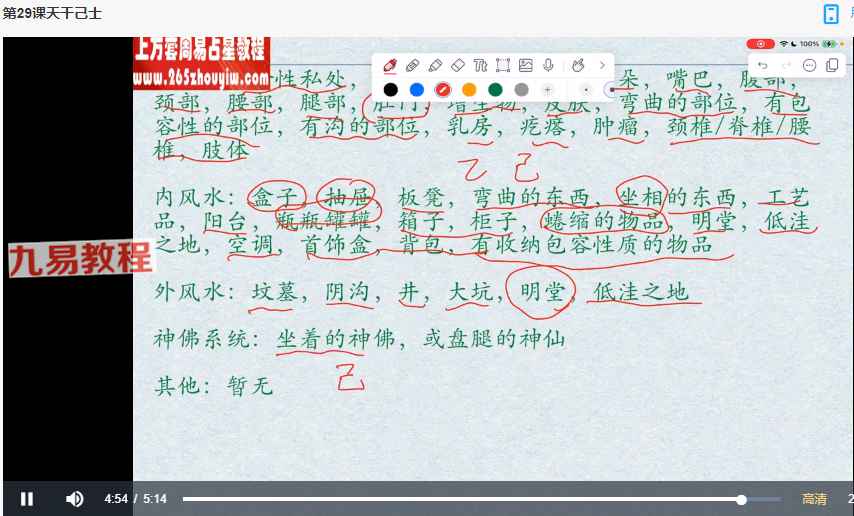 第29课天干己土
上万套周易占星教程
www.265zhouyiw.com
100%
性私处，
朵，嘴巴，腹部，
颈部，腰部，腿部，肛门，增生物，皮肤，弯曲的部位，有包
容性的部位，有沟的部位，乳房，疙瘩，肿瘤，颈椎/脊椎/腰
椎，肢体
己
内风水：盒子，抽屉，板凳，弯曲的东西，坐相的东西，工艺
品，阳台，瓶瓶罐罐，箱子，柜子，蜷缩的物品，明堂，低洼
之地，空调，首饰盒，背包，有收纳包容性质的物品
九易教程
外风水：坟墓，阴沟，井，大坑，明堂，低洼之地
神佛系统：坐着的神佛，或盘腿的神仙
其他：暂无
己
4:54 / 5:14
高清
2